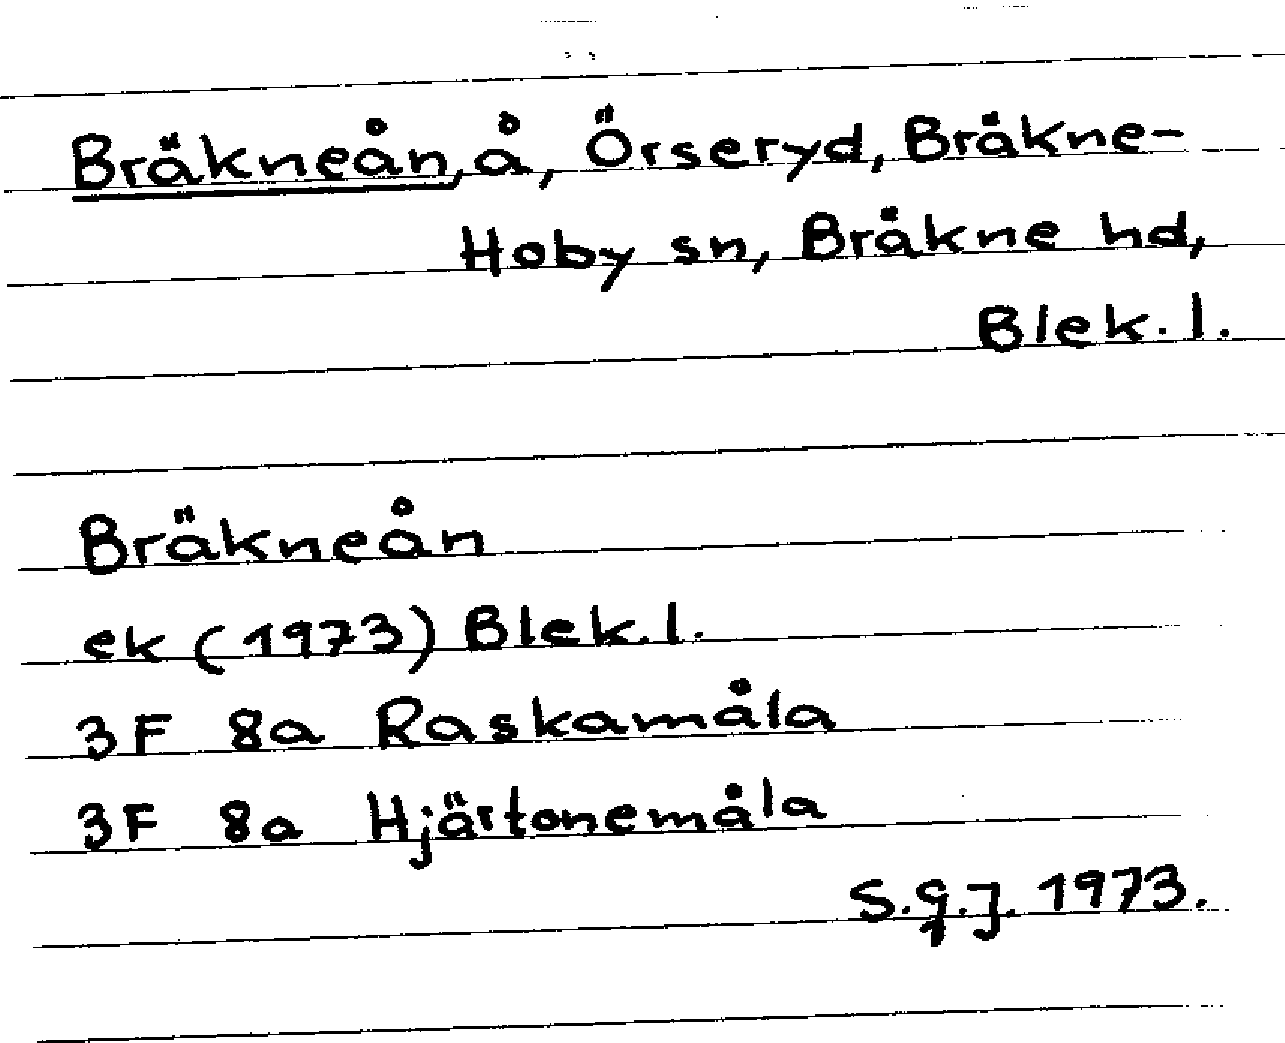 Bräkneån, å, Örseryd, Bräkne-
Hoby sn, Bräkne hd,
Blek. l.
Bräkneån
ek (1973) Blek. l.
3F 8a Raskamåla
3F 8a Hjärtonemåla
S.g.J. 1973.